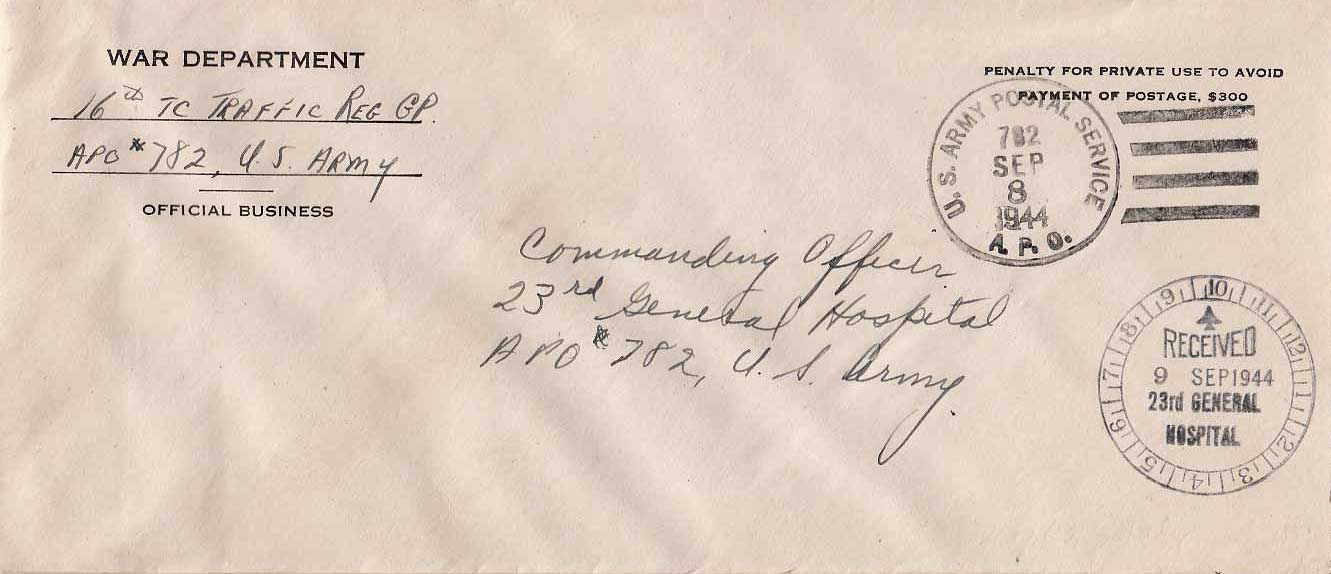 WAR DEPARTMENT
16th TC TRAFFIC REG GP.
APO #782, U.S. ARMY
OFFICIAL BUSINESS
PENALTY FOR PRIVATE USE TO AVOID
PAYMENT OF POSTAGE, $300
U.S. ARMY POSTAL SERVICE
782
SEP
8
1944
A.P.O.
Commanding Officer
23rd General Hospital
APO #782, U.S. Army
9 10 11 12 1 2 3 4 5 6 7 8
RECEIVED
9 SEP 1944
23rd GENERAL
HOSPITAL